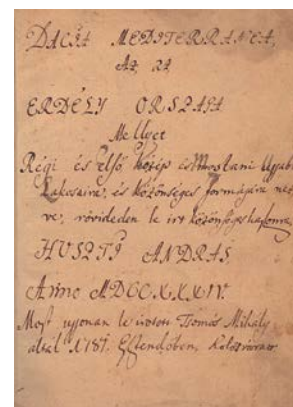 DACIA MEDITERRANEA,
AZ AZ
ERDÉLY ORSZAGA
Mellyet
Régi és Elsö, Közép és Mostani Ujjabb
Lakosaira, és Közönséges formájára néz
ve, rövideden le irt közönséges haszonra
HUSZTI ANDRÁS
Anno MDCCXXXIV.
Most ujjonan le iratott Tsomós Mihály
által Esztendőben, Kolosváron